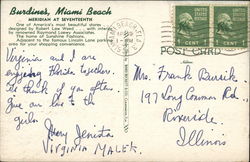 Burdine's, Miami Beach
MERIDIAN AT SEVENTEENTH
One of America's most beautiful stores
designed by Robert Law Weed . . . with interiors
by renowned Raymond Loewy Associates.
The home of Sunshine Fashions.
Adjacent to the famous Lincoln Lane parking
area for your shopping convenience.
Virginia and I are
enjoying Florida together.
We think of you often.
Give our love to the
girls.
Mary Jenista
Virginia MALEK
POST CARD
Mrs. Frank
197 Long Common Rd.
Riverside.
Illinois